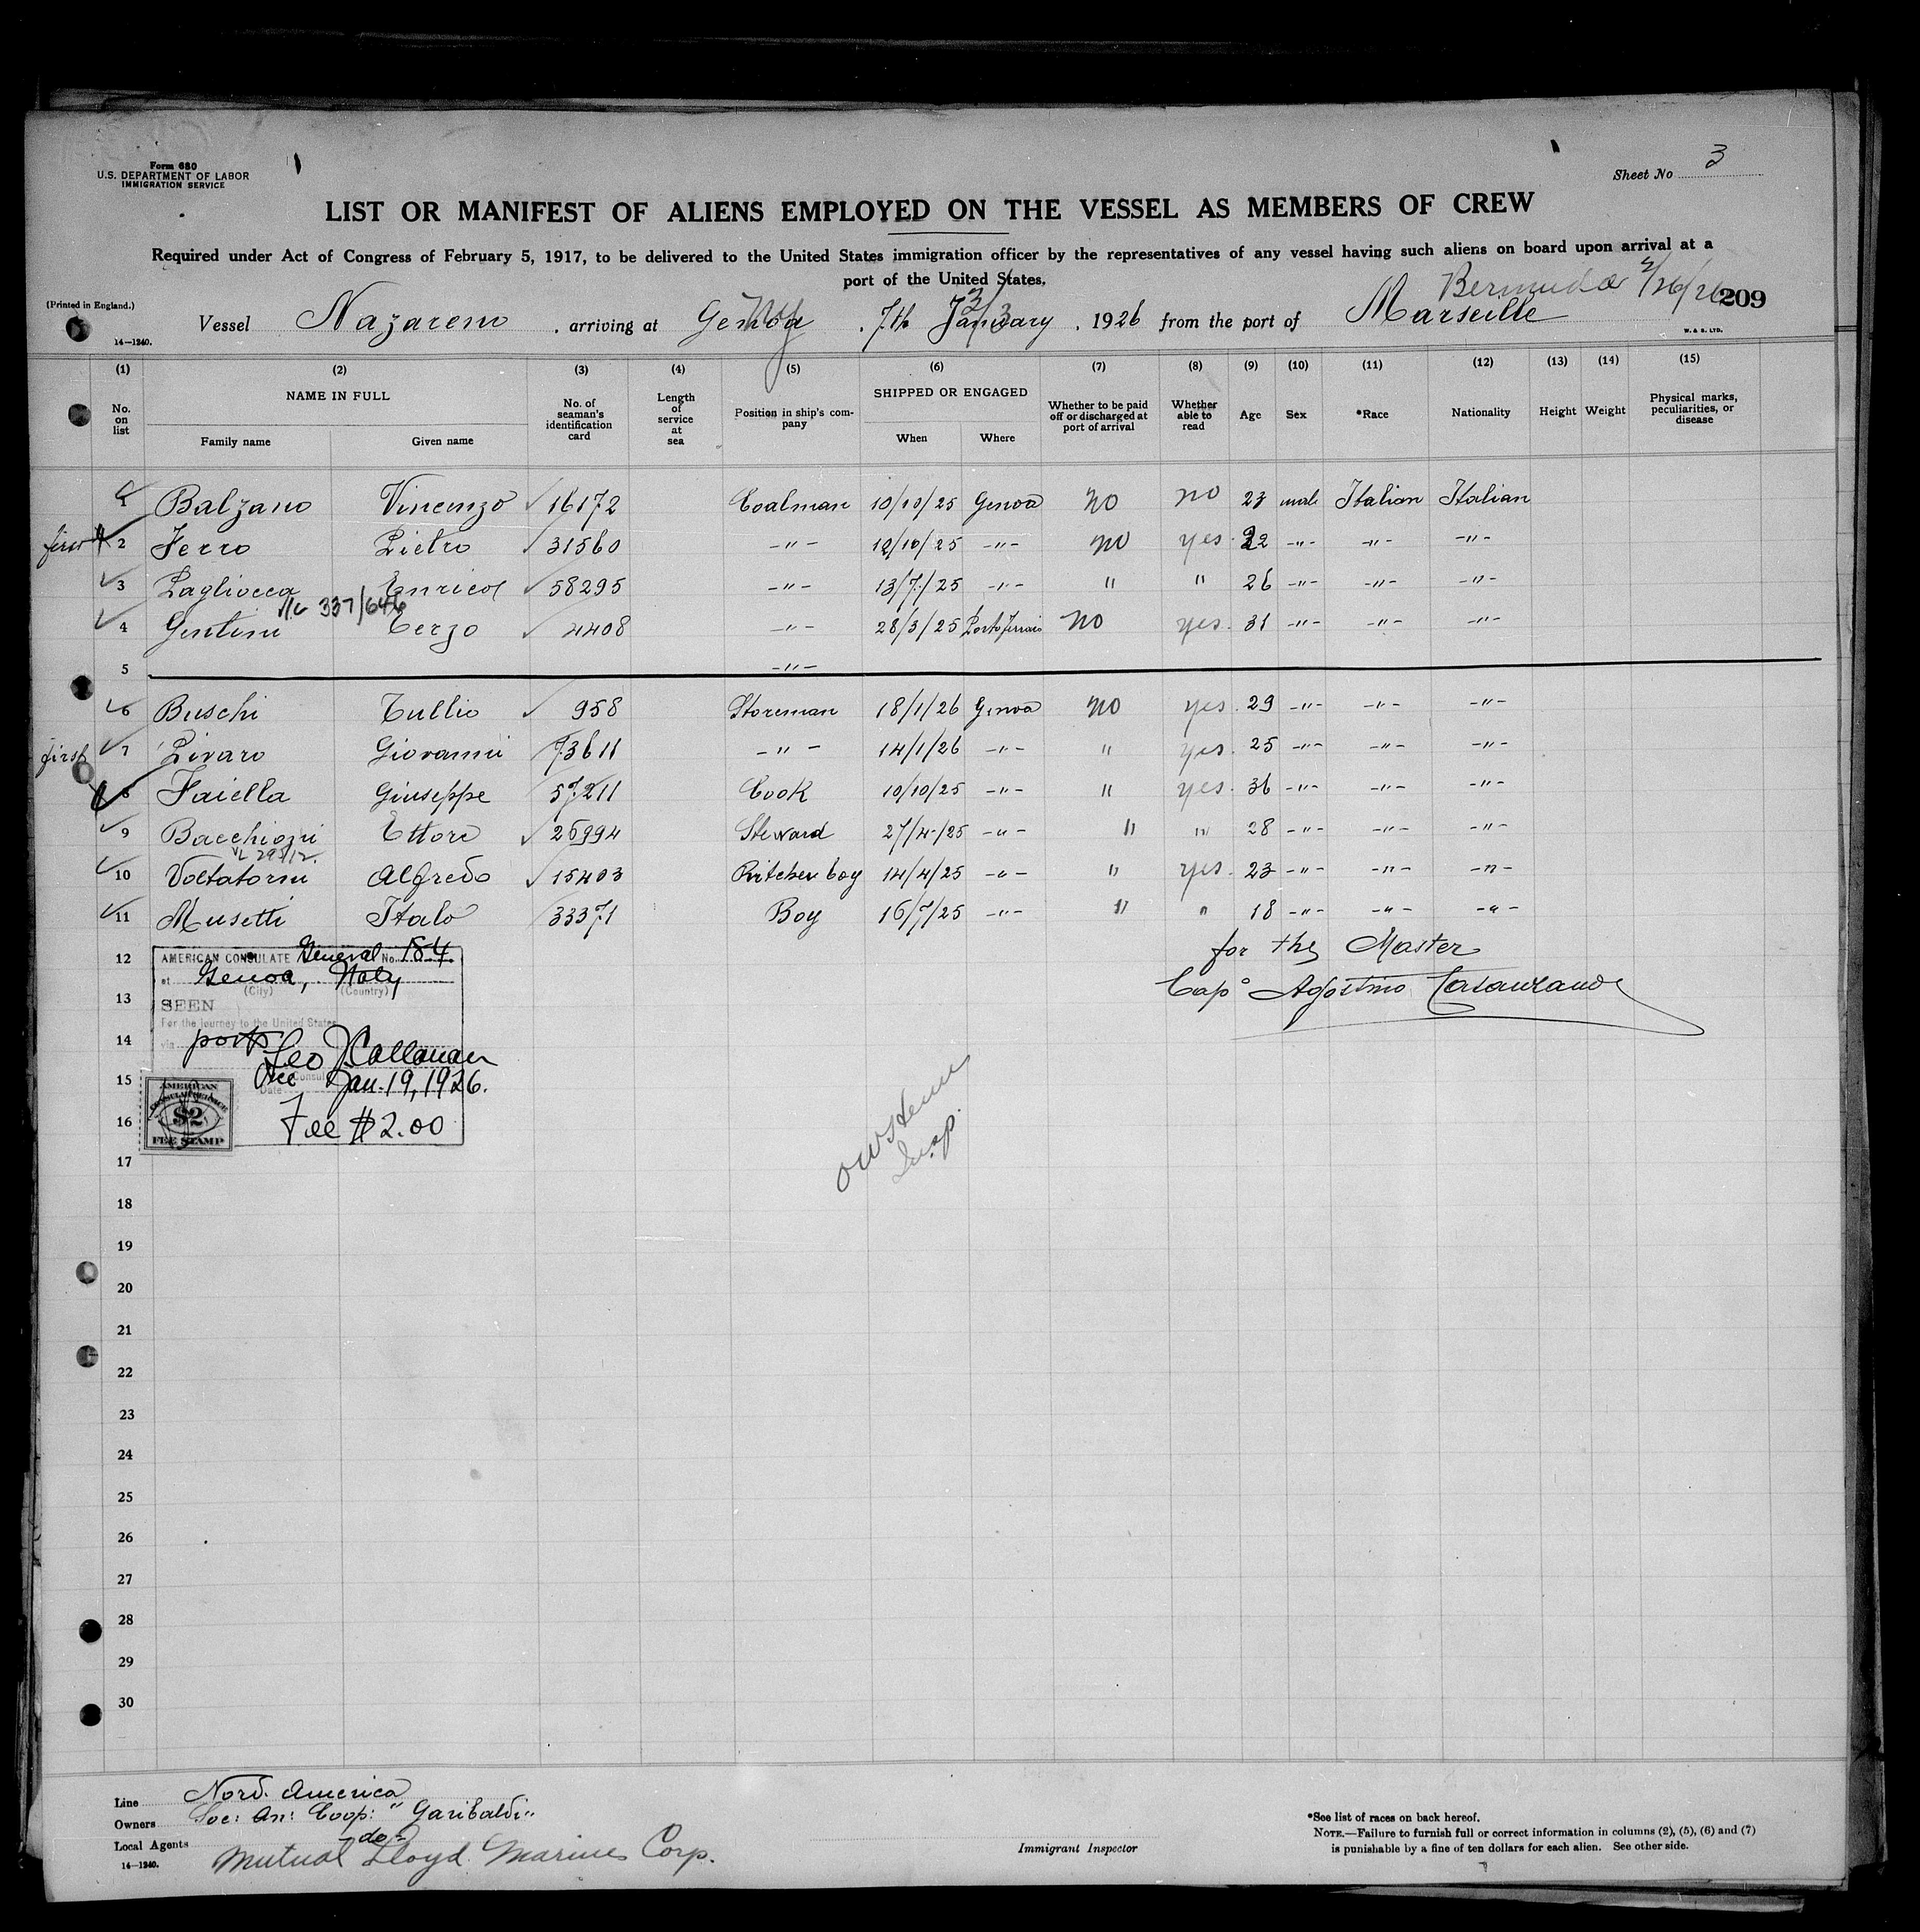 Form 680
U.S. DEPARTMENT OF LABOR
IMMIGRATION SERVICE
Sheet No 3
LIST OR MANIFEST OF ALIENS EMPLOYED ON THE VESSEL AS MEMBERS OF CREW
Required under Act of Congress of February 5, 1917, to be delivered to the United States immigration officer by the representatives of any vessel having such aliens on board upon arrival at a
port of the United States.
(Printed in England.)
Bermuda 2/26/26 209
Vessel Nazareno , arriving at Genoa , 7th January , 1926 from the port of Marseille
3/3
14—1240.
W. & S. LTD.
(1) (2) (3) (4) (5) (6) (7) (8) (9) (10) (11) (12) (13) (14) (15)
No. on list NAME IN FULL Family name Given name No. of seaman's identification card Length of service at sea Position in ship's company SHIPPED OR ENGAGED When Where Whether to be paid off or discharged at port of arrival Whether able to read Age Sex *Race Nationality Height Weight Physical marks, peculiarities, or disease
1 Balzano Vincenzo 16172 Coalman 10/10/25 Genoa no no 23 male Italian Italian
first 2 Ferro Pietro 31560 -"- 12/10/25 -"- no yes 22 -"- -"- -"-
3 Pagliocca Enrico 58295 -"- 13/7/25 -"- " " 26 -"- -"- -"-
337/646
4 Gentini Terzo 4408 -"- 28/3/25 no yes. 31 -"- -"- -"-
5 -"-
6 Buschi Tullio 958 Storeman 18/1/26 Genoa no yes. 29 -"- -"- -"-
first 7 Livaro Giovanni 73611 -"- 14/1/26 -"- " yes. 25 -"- -"- -"-
8 Faiella Giuseppe 57211 Cook 10/10/25 -"- " yes. 36 -"- -"- -"-
9 Bacchioni Ettore 26994 Steward 27/4/25 -"- " " 28 -"- -"- -"-
10 Voltatorni Alfredo 15403 Kitchen boy 14/4/25 -"- " yes. 23 -"- -"- -"-
11 Musetti Italo 33371 Boy 16/7/25 -"- " " 18 -"- -"- -"-
for the Master
Capo Agostino
12
13
14
15
16
AMERICAN CONSULATE General No. 184
at Genoa, Italy
(City) (Country)
SEEN
For the journey to the United States
via ports
Leo J Callanan
Vice Consul
Date Jan. 19, 1926.
Fee $2.00
AMERICAN
CONSULAR SERVICE
$2
FEE STAMP
Insp.
17
18
19
20
21
22
23
24
25
26
27
28
29
30
Line Nord. America
Owners Soc: An: Coop: "Garibaldi"
Local Agents -do-
Mutual Lloyd Marine Corp.
14—1240.
Immigrant Inspector
*See list of races on back hereof.
NOTE.—Failure to furnish full or correct information in columns (2), (5), (6) and (7)
is punishable by a fine of ten dollars for each alien. See other side.